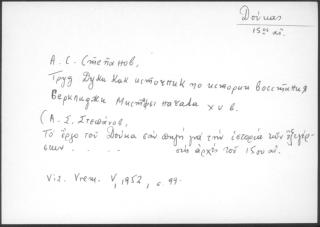 Δούκας
15ος αἰ.
А. С. Степанов,
Труд Дуки как источник по истории восстания
Берклиджи Мустафы начала XV в.
(Α. Σ. Στεπάνοφ,
Τὸ ἔργο τοῦ Δούκα σὰν πηγὴ γιὰ τὴν ἱστορία τῶν ἐξεγέρ-
σεων . . . . . στὶς ἀρχὲς τοῦ 15ου αἰ.
Viz. Vrem. V, 1952, σ. 99-